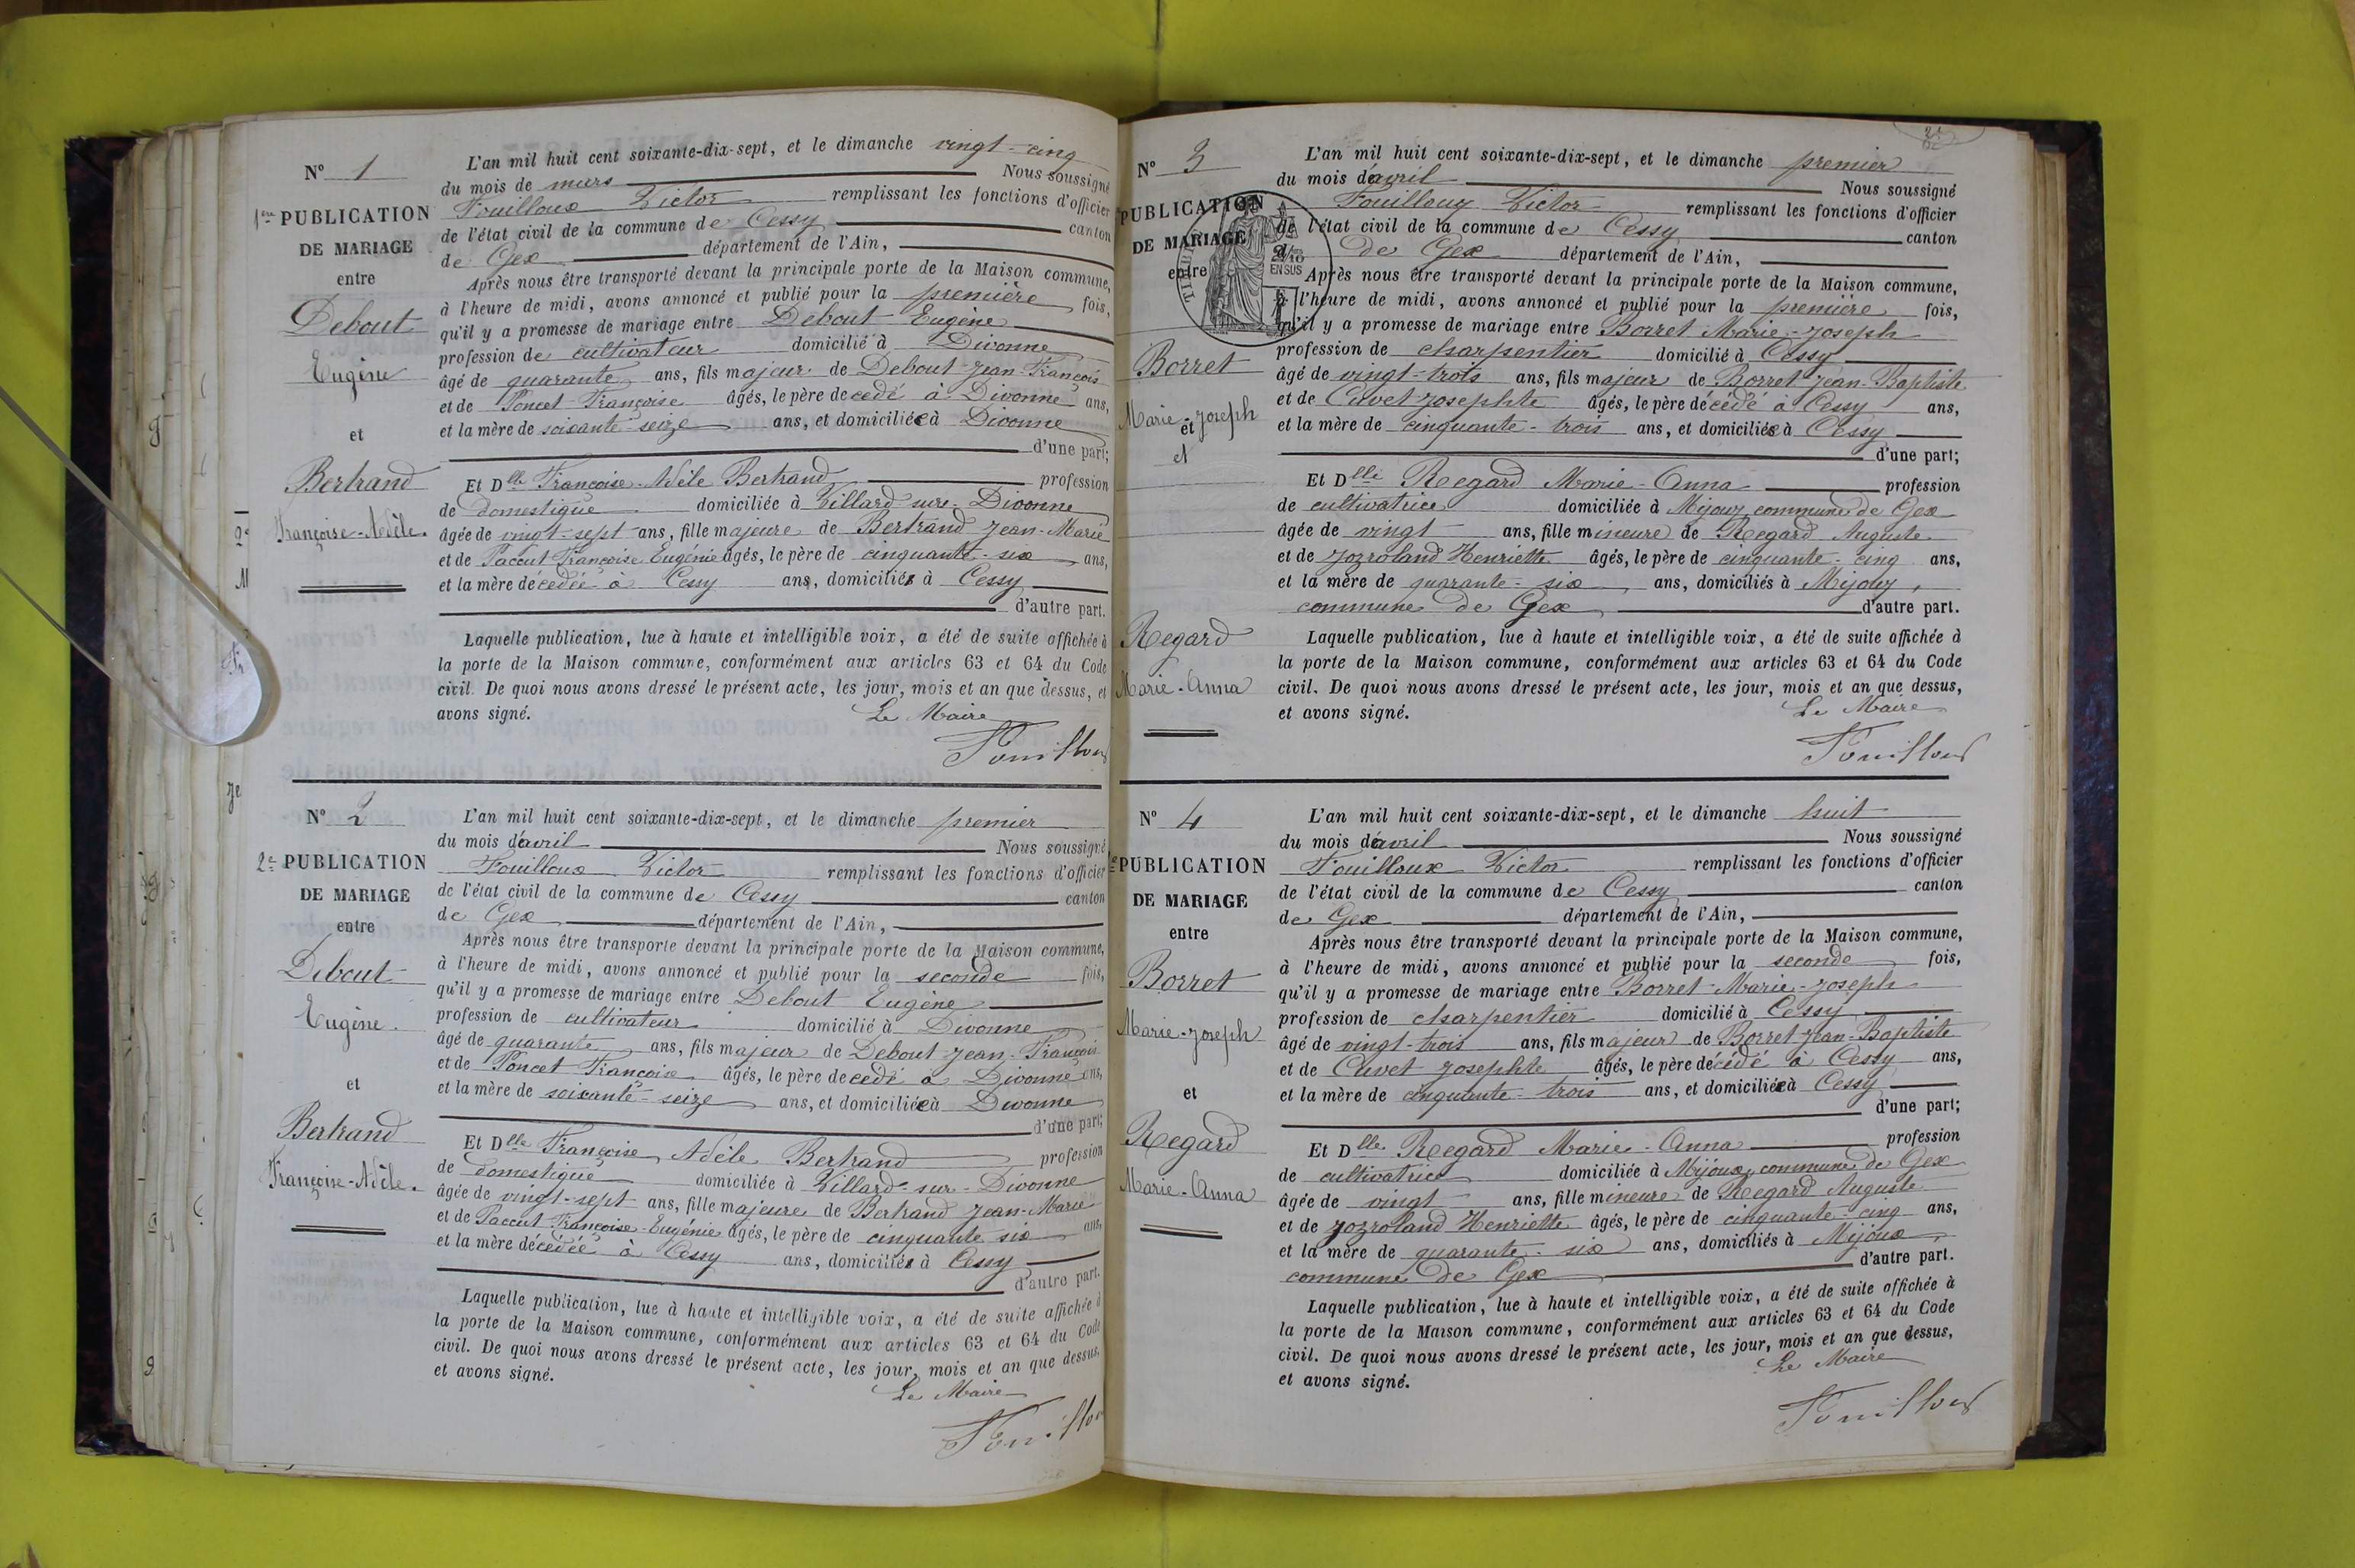 N° 1
1ère PUBLICATION
DE MARIAGE
entre
Debout
Eugène
et
Bertrand
Françoise-Adèle.
L'an mil huit cent soixante-dix-sept, et le dimanche vingt-cinq
du mois de mars Nous soussigné
Fouilloux Victor remplissant les fonctions d'officier
de l'état civil de la commune de Cessy canton
de Gex département de l'Ain,
Après nous être transporté devant la principale porte de la Maison commune,
à l'heure de midi, avons annoncé et publié pour la première fois,
qu'il y a promesse de mariage entre Debout Eugène
profession de cultivateur domicilié à Divonne
âgé de quarante ans, fils majeur de Debout Jean-François
et de Poncet Françoise âgés, le père decedé à Divonne ans,
et la mère de soixante-seize ans, et domiciliée à Divonne
d'une part;
Et Dlle Françoise-Adèle Bertrand profession
de domestique domiciliée à Villard-sur-Divonne
âgée de vingt-sept ans, fille majeure de Bertrand Jean-Marie
et de Paccut Françoise Eugénie âgés, le père de cinquante-six ans,
et la mère décédée à Cessy ans, domiciliés à Cessy
d'autre part.
Laquelle publication, lue à haute et intelligible voix, a été de suite affichée à
la porte de la Maison commune, conformément aux articles 63 et 64 du Code
civil. De quoi nous avons dressé le présent acte, les jour, mois et an que dessus, et
avons signé.
Le Maire
Fouilloux
N° 2
2e PUBLICATION
DE MARIAGE
entre
Debout
Eugène.
et
Bertrand
Françoise-Adèle.
L'an mil huit cent soixante-dix-sept, et le dimanche premier
du mois d'avril Nous soussigné
Fouilloux Victor remplissant les fonctions d'officier
de l'état civil de la commune de Cessy canton
de Gex département de l'Ain,
Après nous être transporté devant la principale porte de la Maison commune,
à l'heure de midi, avons annoncé et publié pour la seconde fois,
qu'il y a promesse de mariage entre Debout Eugène
profession de cultivateur domicilié à Divonne
âgé de quarante ans, fils majeur de Debout Jean-François
et de Poncet Françoise âgés, le père decedé à Divonne ans,
et la mère de soixante-seize ans, et domiciliée à Divonne
d'une part;
Et Dlle Françoise Adèle Bertrand profession
de domestique domiciliée à Villard-sur-Divonne
âgée de vingt-sept ans, fille majeure de Bertrand Jean-Marie
et de Paccut Françoise-Eugénie âgés, le père de cinquante six ans,
et la mère décédée à Cessy ans, domiciliés à Cessy
d'autre part.
Laquelle publication, lue à haute et intelligible voix, a été de suite affichée à
la porte de la Maison commune, conformément aux articles 63 et 64 du Code
civil. De quoi nous avons dressé le présent acte, les jour, mois et an que dessus,
et avons signé.
Le Maire
Fouilloux
N° 3
PUBLICATION
DE MARIAGE
entre
Borret
Marie-Joseph
et
et
Regard
Marie-Anna
2/10
EN SUS
L'an mil huit cent soixante-dix-sept, et le dimanche premier
du mois d'avril Nous soussigné
Fouilloux Victor remplissant les fonctions d'officier
de l'état civil de la commune de Cessy canton
de Gex département de l'Ain,
Après nous être transporté devant la principale porte de la Maison commune,
à l'heure de midi, avons annoncé et publié pour la première fois,
qu'il y a promesse de mariage entre Borret Marie-Joseph
profession de charpentier domicilié à Cessy
âgé de vingt-trois ans, fils majeur de Borret Jean-Baptiste
et de Cuvet Josephte âgés, le père décédé à Cessy ans,
et la mère de cinquante-trois ans, et domiciliée à Cessy
d'une part;
Et Dlle Regard Marie-Anna profession
de cultivatrice domiciliée à Mijoux commune de Gex
âgée de vingt ans, fille mineure de Regard Auguste
et de Jozroland Henriette âgés, le père de cinquante-cinq ans,
et la mère de quarante-six ans, domiciliés à Mijoux,
commune de Gex d'autre part.
Laquelle publication, lue à haute et intelligible voix, a été de suite affichée à
la porte de la Maison commune, conformément aux articles 63 et 64 du Code
civil. De quoi nous avons dressé le présent acte, les jour, mois et an que dessus,
et avons signé.
Le Maire
Fouilloux
N° 4
PUBLICATION
DE MARIAGE
entre
Borret
Marie-Joseph
et
Regard
Marie-Anna
L'an mil huit cent soixante-dix-sept, et le dimanche huit
du mois d'avril Nous soussigné
Fouilloux Victor remplissant les fonctions d'officier
de l'état civil de la commune de Cessy canton
de Gex département de l'Ain,
Après nous être transporté devant la principale porte de la Maison commune,
à l'heure de midi, avons annoncé et publié pour la seconde fois,
qu'il y a promesse de mariage entre Borret-Marie-Joseph
profession de charpentier domicilié à Cessy
âgé de vingt-trois ans, fils majeur de Borret Jean-Baptiste
et de Cuvet Josephte âgés, le père décédé à Cessy ans,
et la mère de cinquante-trois ans, et domiciliée à Cessy
d'une part;
Et Dlle Regard Marie-Anna profession
de cultivatrice domiciliée à Mijoux, commune de Gex
âgée de vingt ans, fille mineure de Regard Auguste
et de Jozroland Henriette âgés, le père de cinquante-cinq ans,
et la mère de quarante-six ans, domiciliés à Mijoux,
commune de Gex d'autre part.
Laquelle publication, lue à haute et intelligible voix, a été de suite affichée à
la porte de la Maison commune, conformément aux articles 63 et 64 du Code
civil. De quoi nous avons dressé le présent acte, les jour, mois et an que dessus,
et avons signé.
Le Maire
Fouilloux